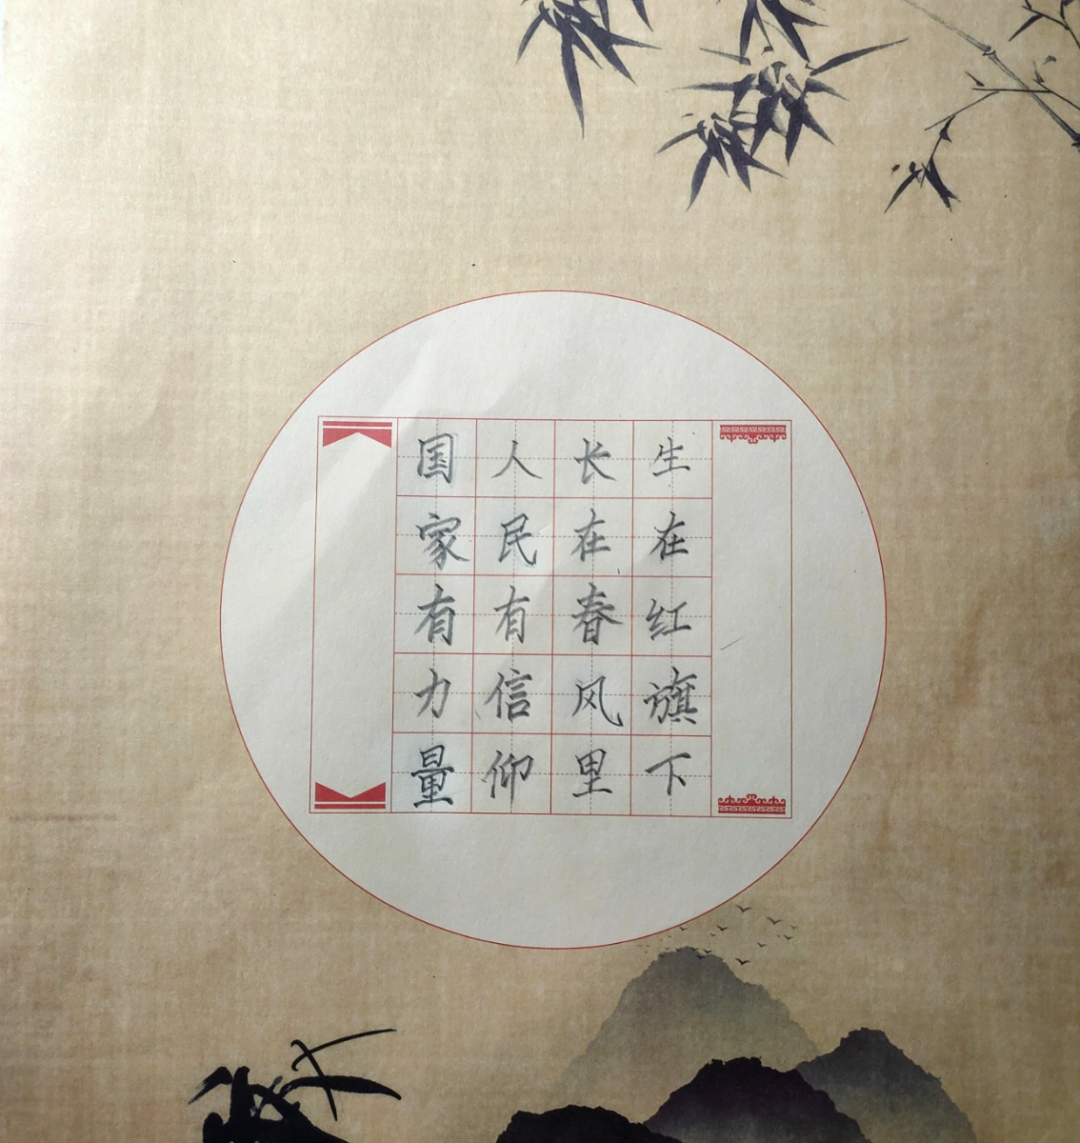 生在红旗下
长在春风里
人民有信仰
国家有力量